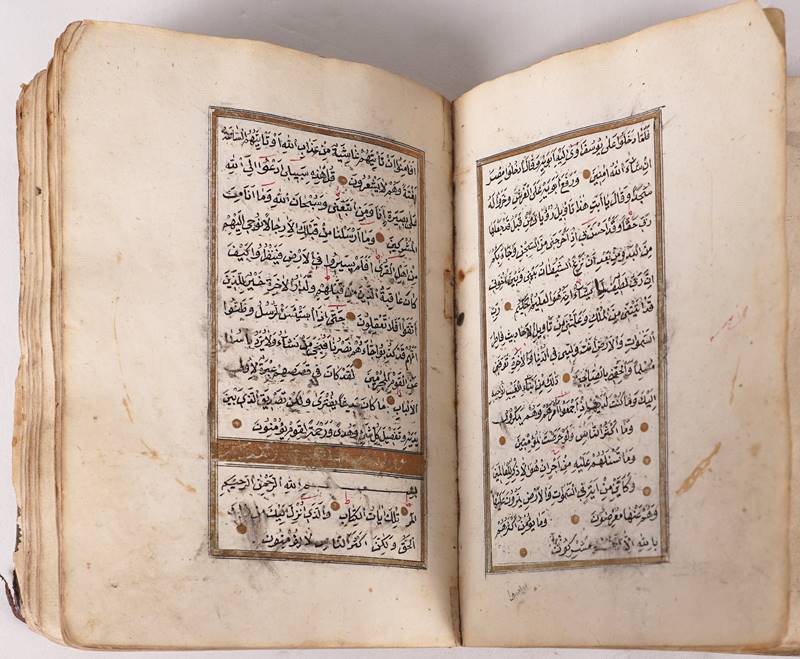 فلما دخلوا على يوسف اوى اليه ابويه وقال ادخلوا مصر
ان شاء الله امنين ورفع ابويه على العرش وخروا له
سجدا وقال يا ابت هذا تاويل رؤياي من قبل قد جعلها
ربي حقا وقد احسن بي اذ اخرجني من السجن وجاء بكم
من البدو من بعد ان نزغ الشيطان بيني وبين اخوتي
ان ربي لطيف لما يشاء انه هو العليم الحكيم رب
قد اتيتني من الملك وعلمتني من تاويل الاحاديث فاطر
السموات والارض انت وليي في الدنيا والاخرة توفني
مسلما والحقني بالصالحين ذلك من انباء الغيب نوحيه
اليك وما كنت لديهم اذ اجمعوا امرهم وهم يمكرون
وما اكثر الناس ولو حرصت بمؤمنين
وما تسئلهم عليه من اجر ان هو الا ذكر للعالمين
وكاين من اية في السموات والارض يمرون عليها
وهم عنها معرضون وما يؤمن اكثرهم
بالله الا وهم مشركون
افامنوا
افامنوا ان تاتيهم غاشية من عذاب الله او تاتيهم الساعة
بغتة وهم لا يشعرون قل هذه سبيلي ادعوا الى الله
على بصيرة انا ومن اتبعني وسبحان الله وما انا من
المشركين وما ارسلنا من قبلك الا رجالا نوحي اليهم
من اهل القرى افلم يسيروا في الارض فينظروا كيف
كان عاقبة الذين من قبلهم ولدار الاخرة خير للذين
اتقوا افلا تعقلون حتى اذا استيئس الرسل وظنوا
انهم قد كذبوا جاءهم نصرنا فنجي من نشاء ولا يرد باسنا
عن القوم المجرمين لقد كان في قصصهم عبرة لاولي
الالباب ما كان حديثا يفترى ولكن تصديق الذي بين
يديه وتفصيل كل شيء وهدى ورحمة لقوم يؤمنون
بسم الله الرحمن الرحيم
المر تلك ايات الكتاب والذي انزل اليك من ربك
الحق ولكن اكثر الناس لا يؤمنون